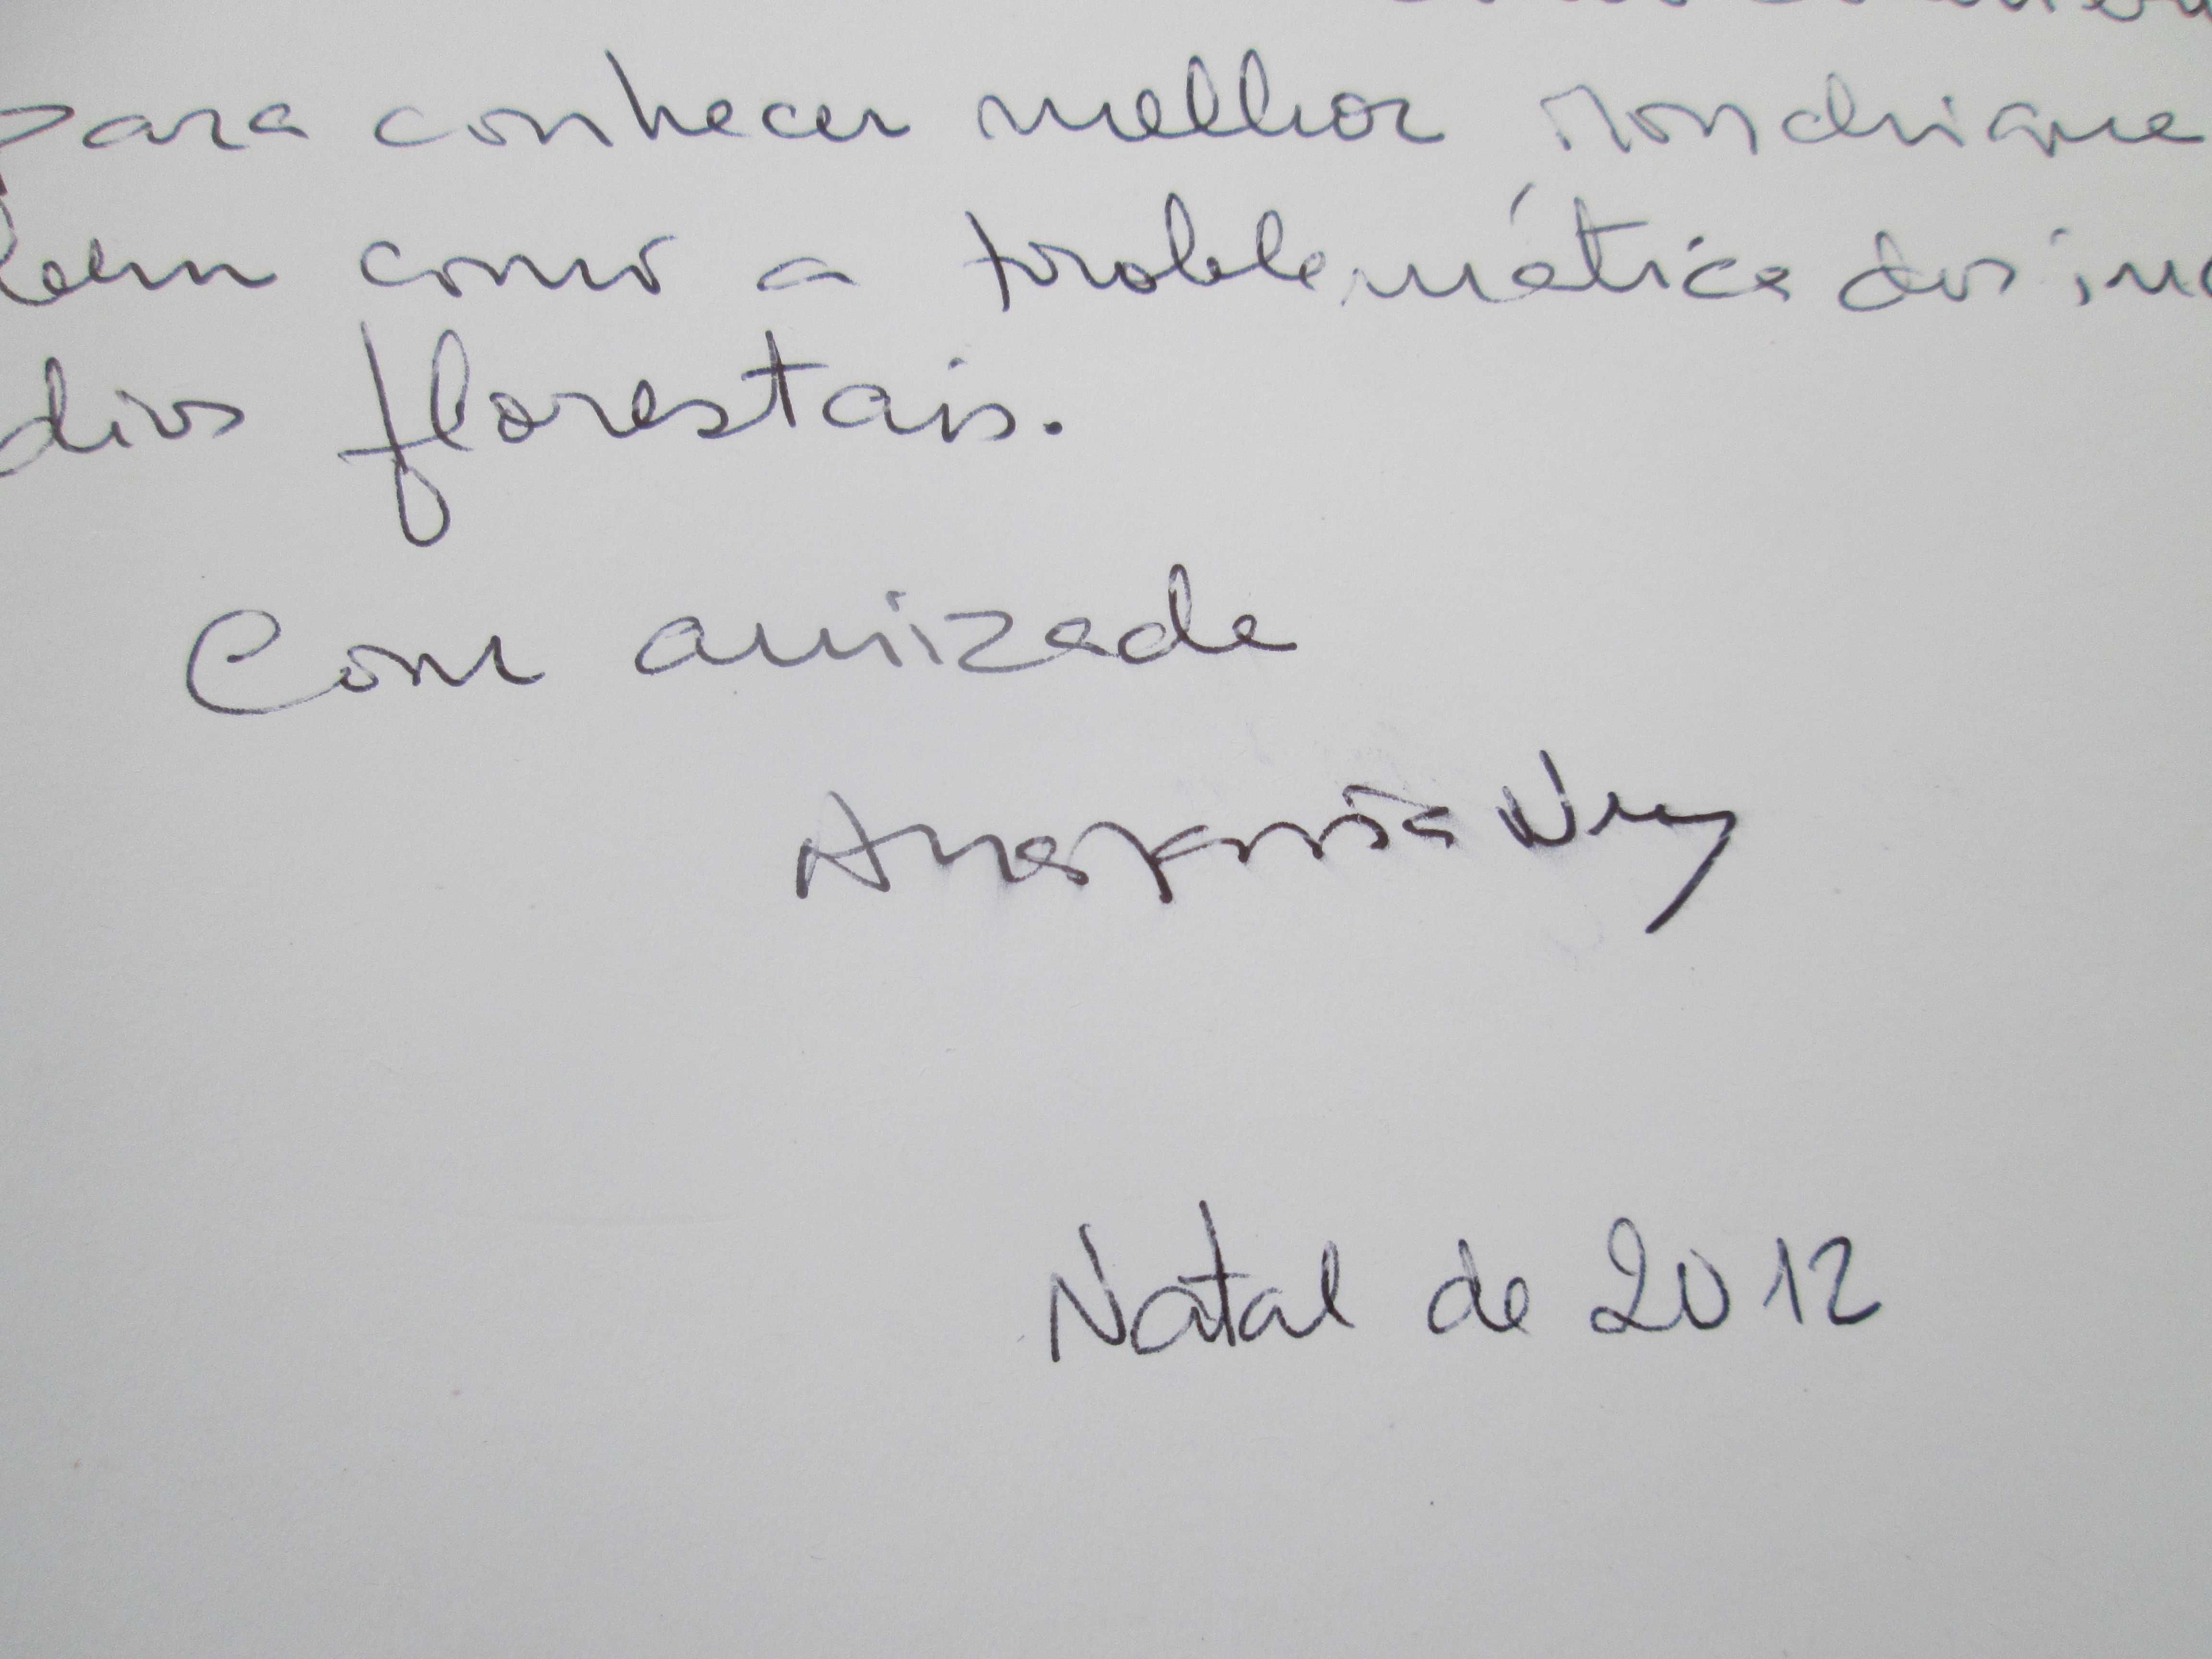 para conhecer melhor Monchique
bem como a problemática dos incên
dios florestais.
Com amizade
Natal de 2012